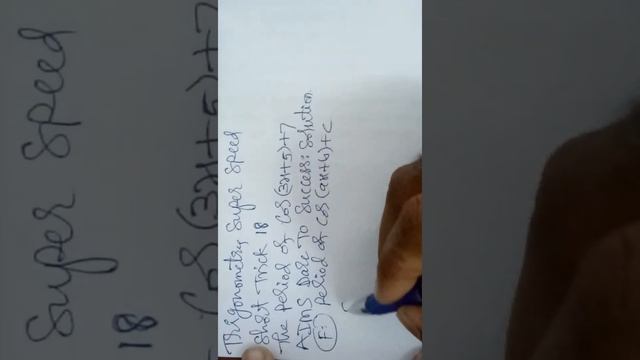 Trigonometry Super Speed
Short Trick 18
The Period of Cos(3x+5)+7
AIMS DaRe To Success: Solution
F: Period of Cos(ax+b)+c